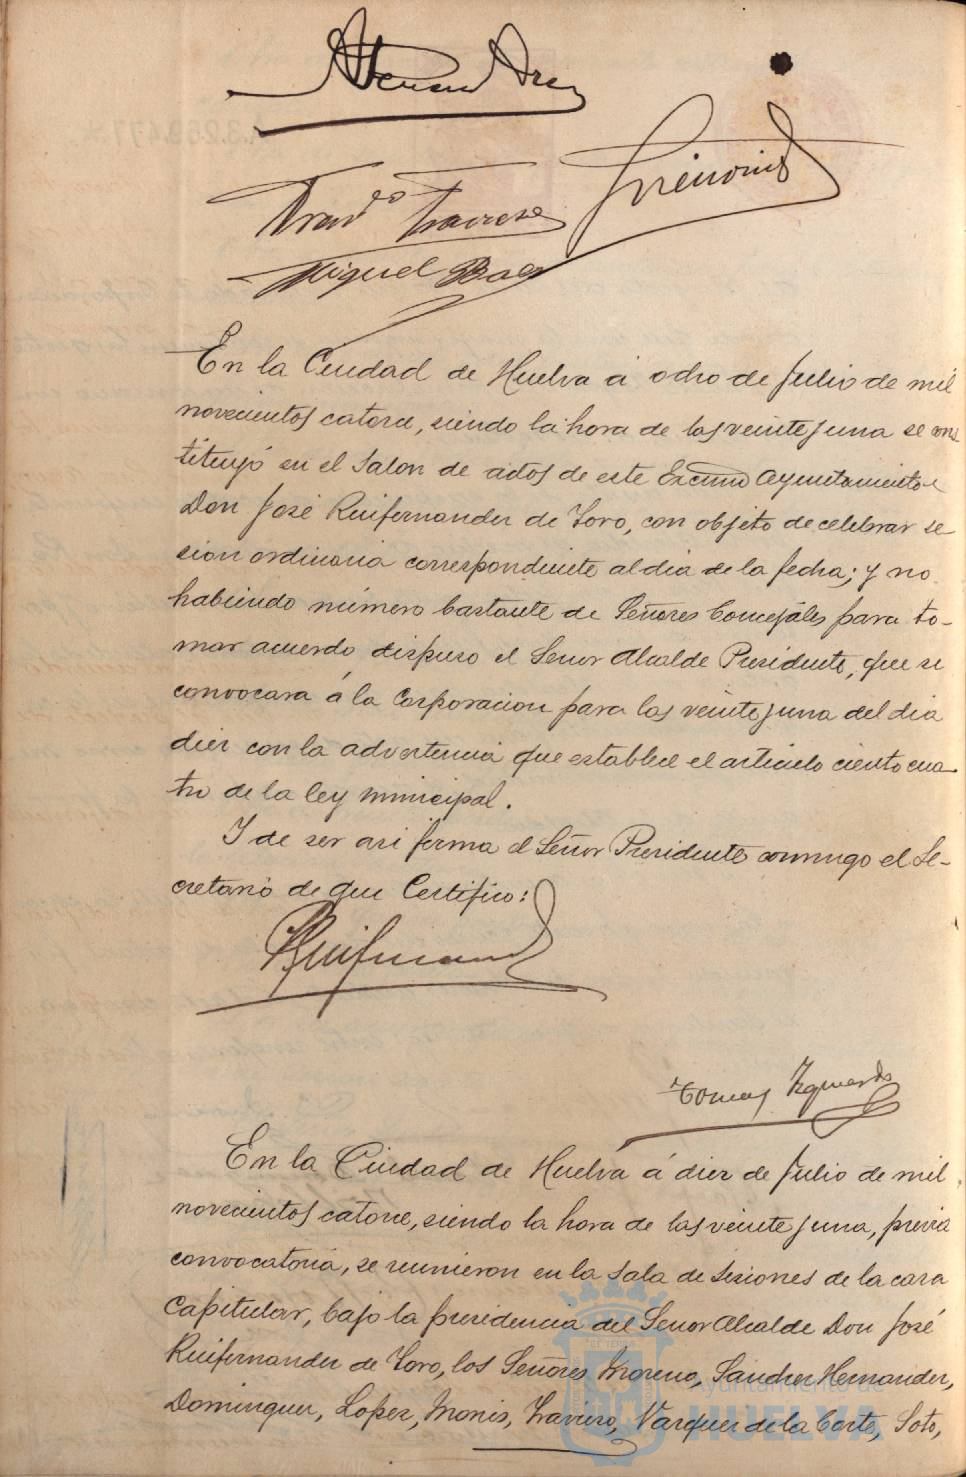 Miguel Baez
En la Ciudad de Huelva á ocho de Julio de mil
novecientos catorce, siendo la hora de las veinte y una se cons
tituyó en el Salon de actos de este Excmo Ayuntamiento
Don José Ruifernandez de Toro, con objeto de celebrar se-
sion ordinaria correspondiente al dia de la fecha; y no
habiendo número bastante de Señores Concejales para to-
mar acuerdo dispuso el Señor Alcalde Presidente, que se
convocara á la Corporacion para las veinte y una del dia
diez con la advertencia que establece el articulo ciento cua-
tro de la ley municipal.
Y de ser asi firma el Señor Presidente conmigo el Se-
cretario de que Certifico:
Ruifernand
Tomas Izquierdo
En la Ciudad de Huelva á diez de Julio de mil
novecientos catorce, siendo la hora de las veinte y una, previa
convocatoria, se reunieron en la Sala de Sesiones de la casa
Capitular, bajo la presidencia del Señor Alcalde Don José
Ruifernandez de Toro, los Señores Moreno, Sanchez Hernandez,
Dominguez, Lopez, Monis, Travieso, Vazquez de la Corte, Soto,
Ayuntamiento de
HUELVA